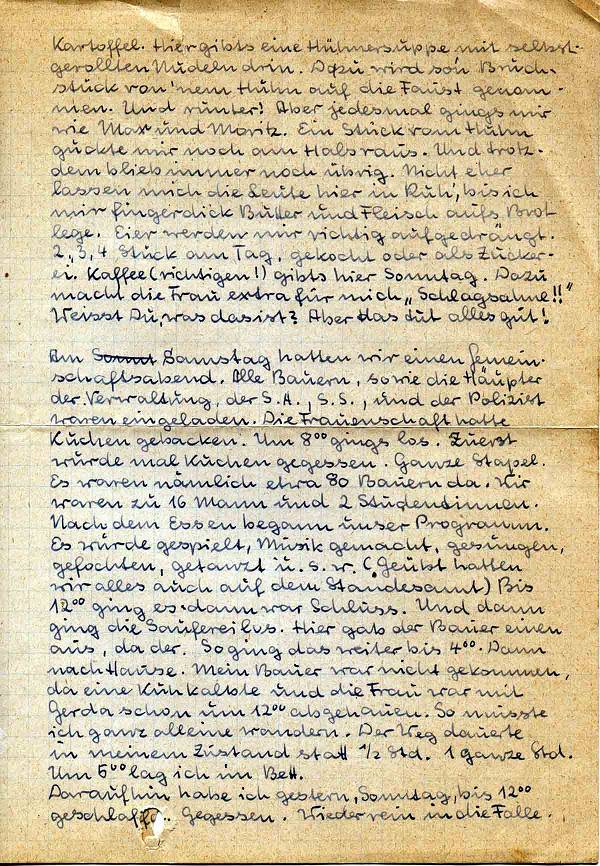 Kartoffel. Hier gibts eine Hühnersuppe mit selbst-
gerollten Nudeln drin. Dazu wird so'n Bruch-
stück von 'nem Huhn auf die Faust genom-
men. Und runter! Aber jedesmal gings mir
wie Max und Moritz. Ein Stück vom Huhn
guckte mir noch am Hals raus. Und trotz-
dem blieb immer noch übrig. Nicht eher
lassen mich die Leute hier in Ruh', bis ich
mir fingerdick Butter und Fleisch aufs Brot
lege. Eier werden mir richtig aufgedrängt.
2, 3, 4 Stück am Tag, gekocht oder als Zucker-
ei. Kaffee (richtigen!) gibts hier Sonntag. Dazu
macht die Frau extra für mich „Schlagsahne!!"
Weisst Du, was das ist? Aber das tut alles gut!
Am Sonnt Samstag hatten wir einen Gemein-
schaftsabend. Alle Bauern, sowie die Häupter
der Verwaltung, der S.A., S.S., und der Polizist
waren eingeladen. Die Frauenschaft hatte
Kuchen gebacken. Um 8⁰⁰ gings los. Zuerst
wurde mal Kuchen gegessen. Ganze Stapel.
Es waren nämlich etwa 80 Bauern da. Wir
waren zu 16 Mann und 2 Studentinnen.
Nach dem Essen begann unser Programm.
Es wurde gespielt, Musik gemacht, gesungen,
gefochten, getanzt u. s. w. (Geübt hatten
wir alles auch auf dem Standesamt) Bis
12⁰⁰ ging es. dann war Schluss. Und dann
ging die Sauferei los. Hier gab der Bauer einen
aus, da der. So ging das weiter bis 4⁰⁰. Dann
nach Hause. Mein Bauer war nicht gekommen,
da eine Kuh kalbte und die Frau war mit
Gerda schon um 12⁰⁰ abgehauen. So musste
ich ganz alleine wandern. Der Weg dauerte
in meinem Zustand statt ½ Std. 1 ganze Std.
Um 5⁰⁰ lag ich im Bett.
Daraufhin habe ich gestern, Sonntag, bis 12⁰⁰
geschlafen. Gegessen. Wieder rein in die Falle.